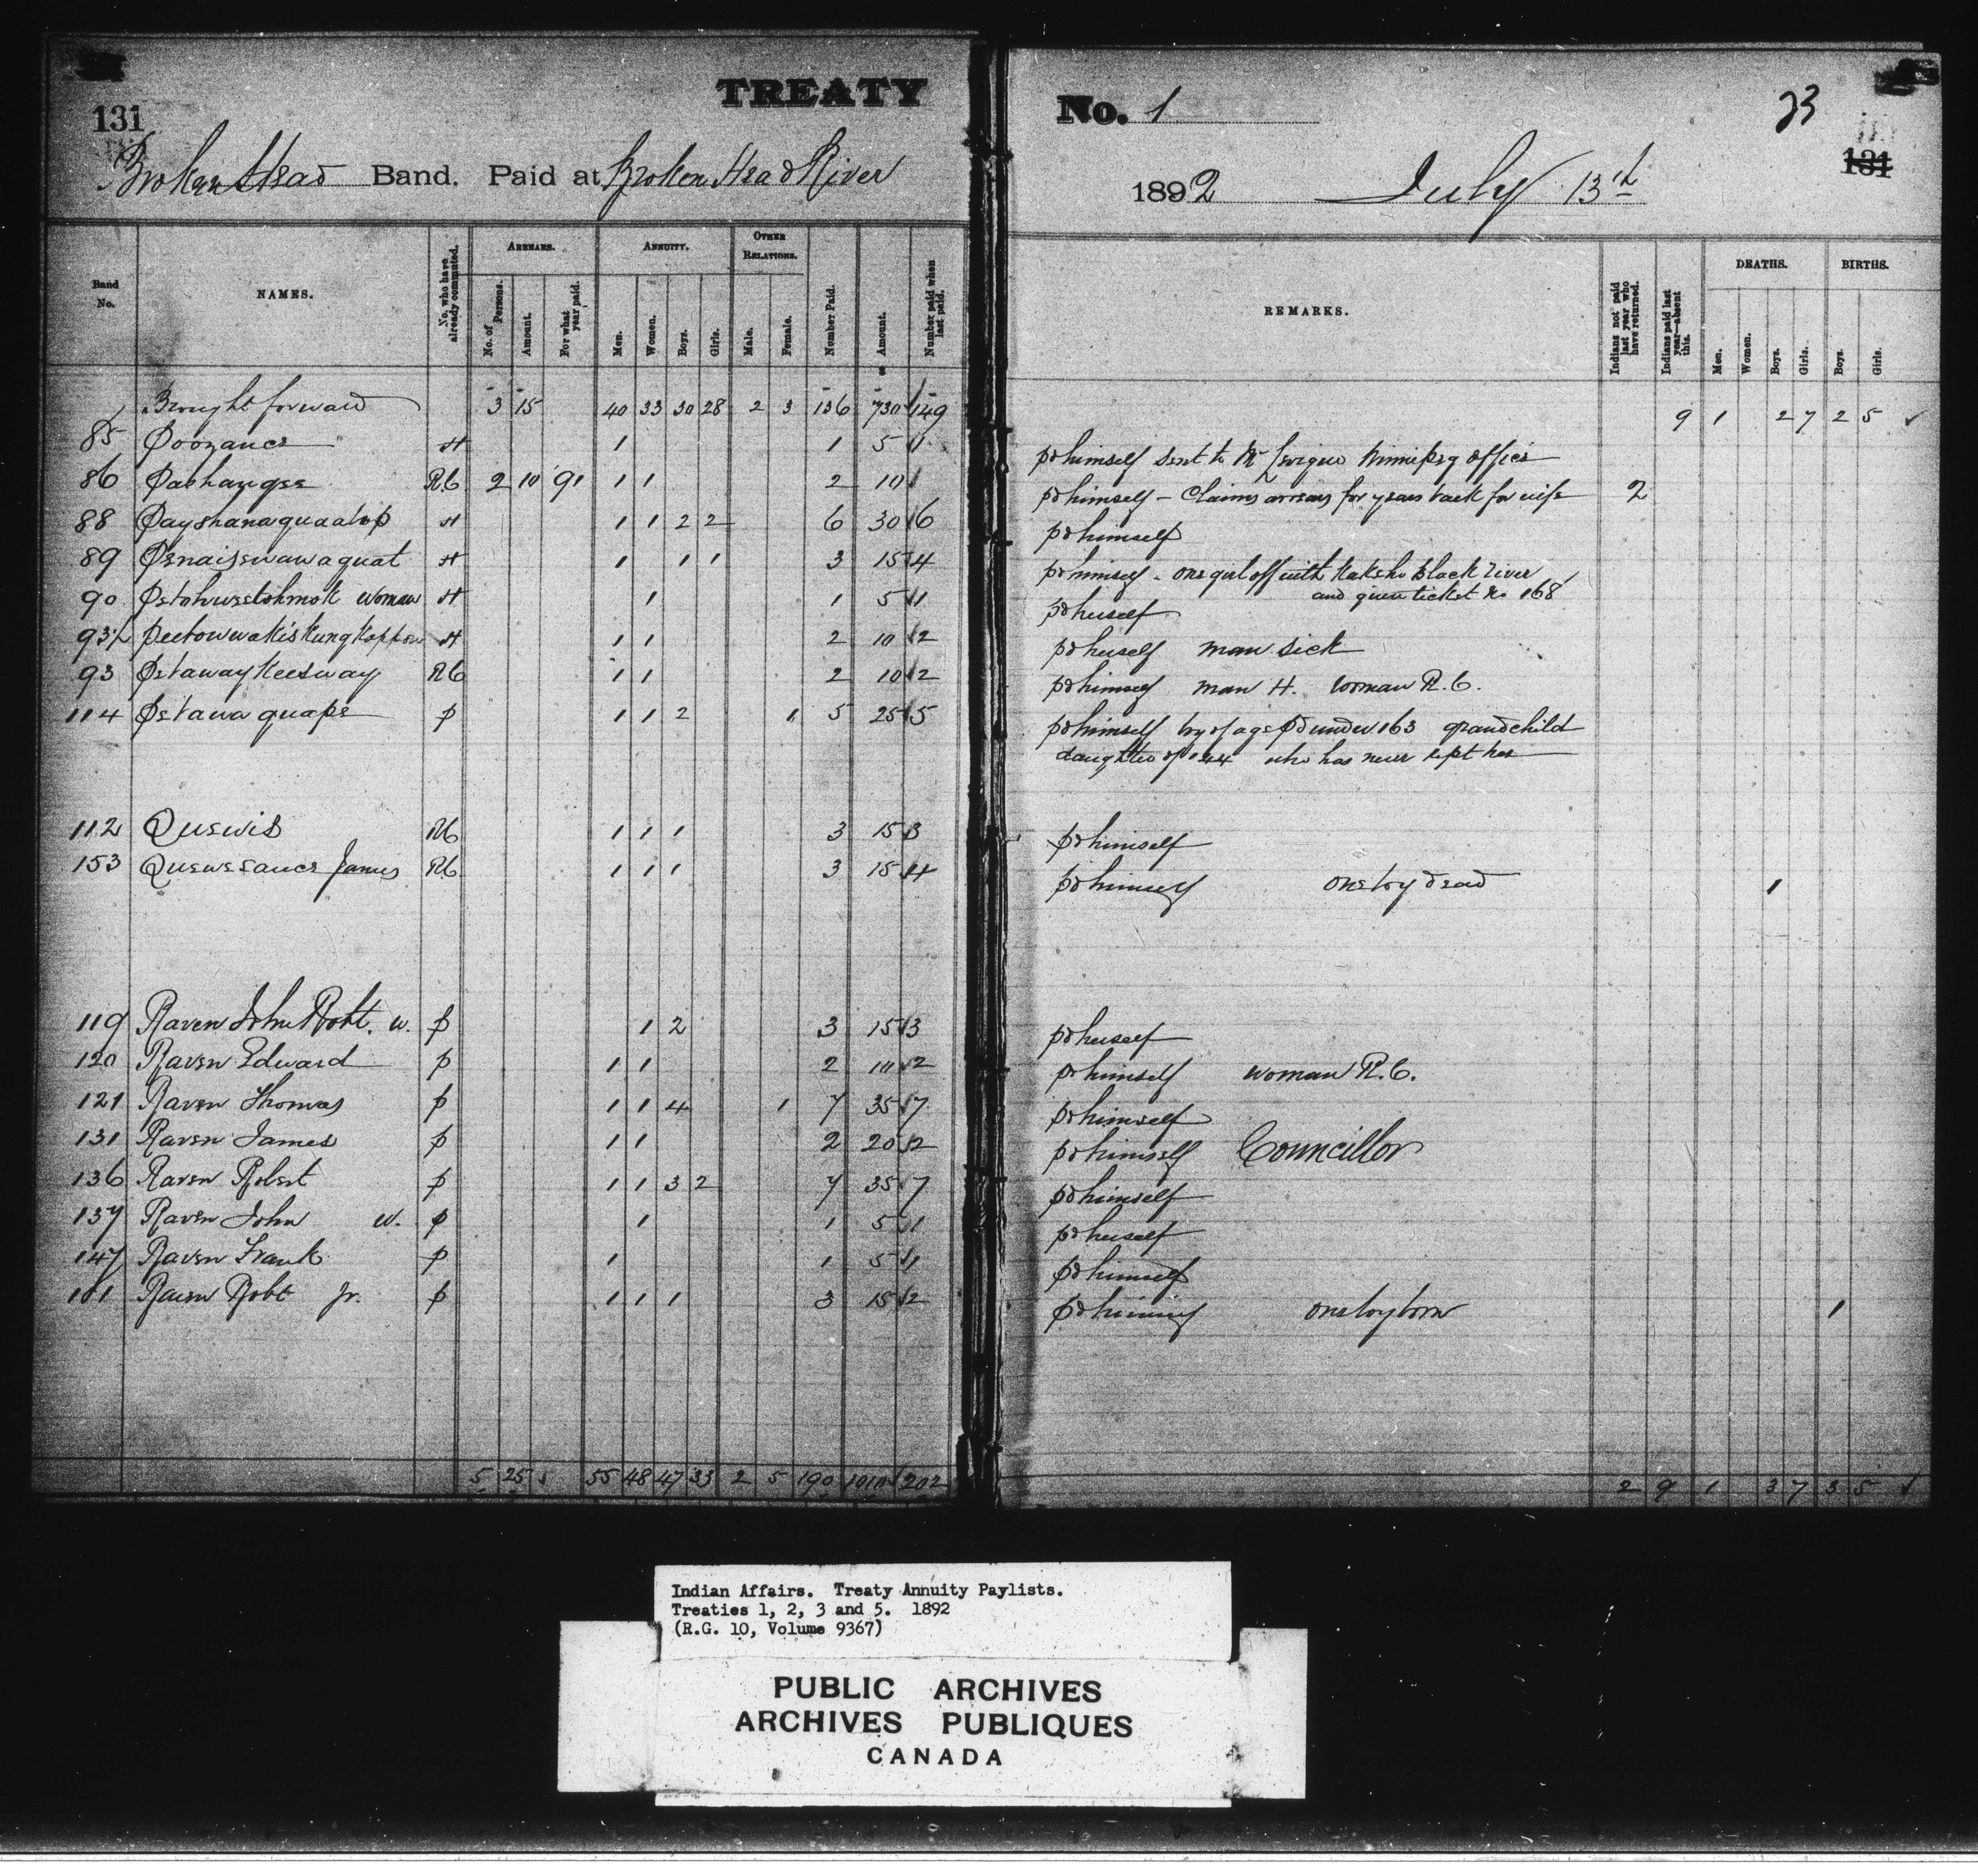 131
TREATY
Broken Head Band. Paid at Broken Head River
Band No. NAMES. No. who have already commuted. ARREARS. No. of Persons. Amount. For what year paid. ANNUITY. Men. Women. Boys. Girls. OTHER RELATIONS. Male. Female. Number Paid. Amount. Number paid when last paid.
Brought forward 3 15 40 33 30 28 2 3 136 730 149
85 Poozance H 1 1 5 1
86 Pashangee R.C. 2 10 91 1 1 2 10
88 Payshanaquaatop H 1 1 2 2 6 30 6
89 Penaisewawaquat H 1 1 1 3 15 4
90 woman H 1 1 5 1
93½ H 1 1 2 10 2
93 Petawaykeesway RC 1 1 2 10 2
114 Petawaquape P 1 1 2 1 5 25 5
112 Quewis RC 1 1 1 3 15 3
153 Quewesance James RC 1 1 1 3 15 4
119 Raven John Robt. W. P 1 2 3 15 3
120 Raven Edward P 1 1 2 10 2
121 Raven Thomas P 1 1 4 1 7 35 7
131 Raven James P 1 1 2 20 2
136 Raven Robert P 1 1 3 2 7 35 7
137 Raven John W. P 1 1 5 1
147 Raven Frank P 1 1 5 1
Raven Robt Jr. P 1 1 1 3 15 2
5 25 55 48 47 33 2 5 190 1010 202
No. 1
23
131
1892 July 13th
REMARKS. Indians not paid last year who have returned. Indians paid last year—absent this. DEATHS. Men. Women. Boys. Girls. BIRTHS. Boys. Girls.
9 1 2 7 2 5 ✓
pd himself sent to Mr Winnipeg office
pd himself - Claims arrears for years back for wife 2
pd himself
pd himself - one girl off with Kakeho Black River
and given ticket no 168
pd herself
pd herself man sick
pd himself man H. woman R.C.
pd himself boy of age pd under 163 grandchild
daughter of 144 who has never kept her
pd himself
pd himself one boy dead 1
pd herself
pd himself woman R.C.
pd himself
pd himself Councillor
pd himself
pd herself
pd himself
pd himself one boy born 1
2 9 1 3 7 3 5 ✓
Indian Affairs. Treaty Annuity Paylists.
Treaties 1, 2, 3 and 5. 1892
(R.G. 10, Volume 9367)
PUBLIC ARCHIVES
ARCHIVES PUBLIQUES
CANADA